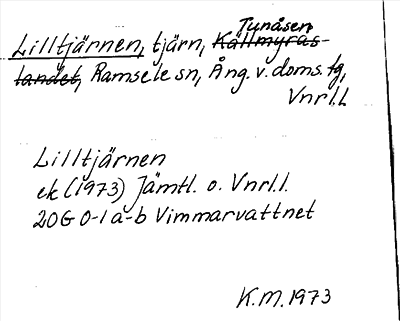 Tunåsen
Lilltjärnen, tjärn, Källmyras-
landet, Ramsele sn, Ång. v. doms. fg,
Vnrl.L
Lilltjärnen
ek (1973) Jämtl. o. Vnrl.l.
20G 0-1 a-b Vimmarvattnet
K.M. 1973